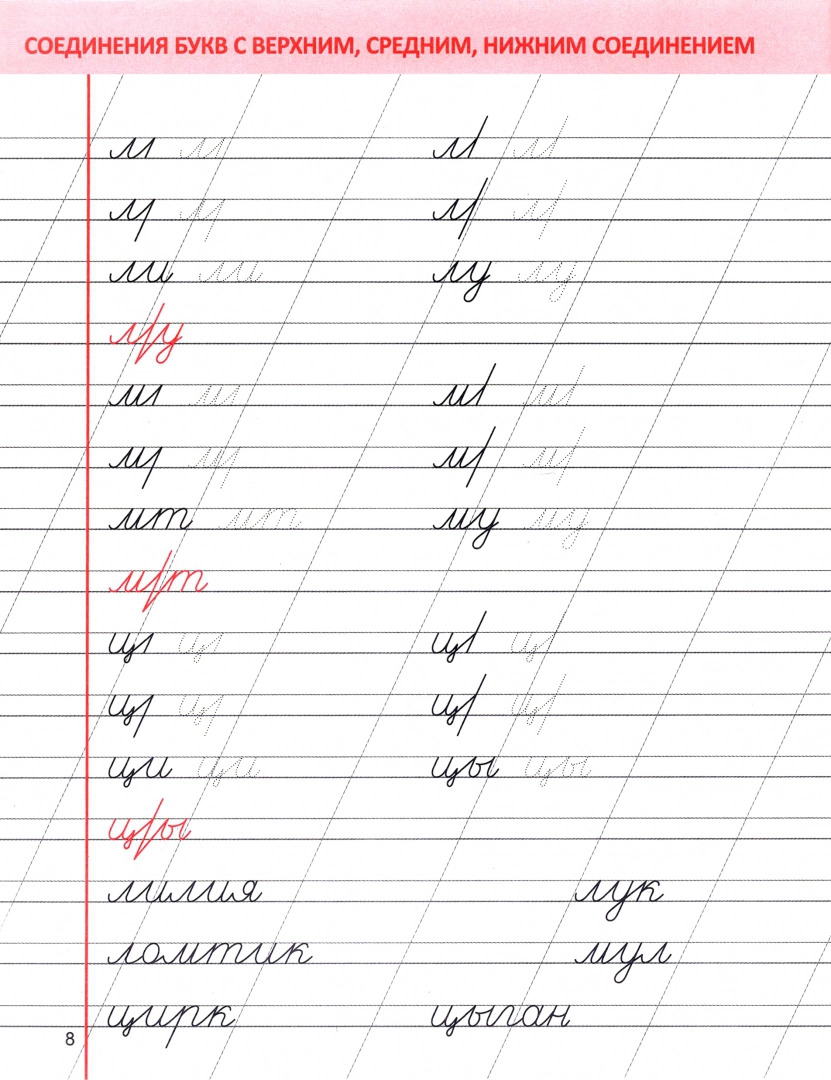 СОЕДИНЕНИЯ БУКВ С ВЕРХНИМ, СРЕДНИМ, НИЖНИМ СОЕДИНЕНИЕМ
ли ли лу лу
мт мт му му
ци ци цы цы
лилия лук
ломтик мул
цирк цыган
8